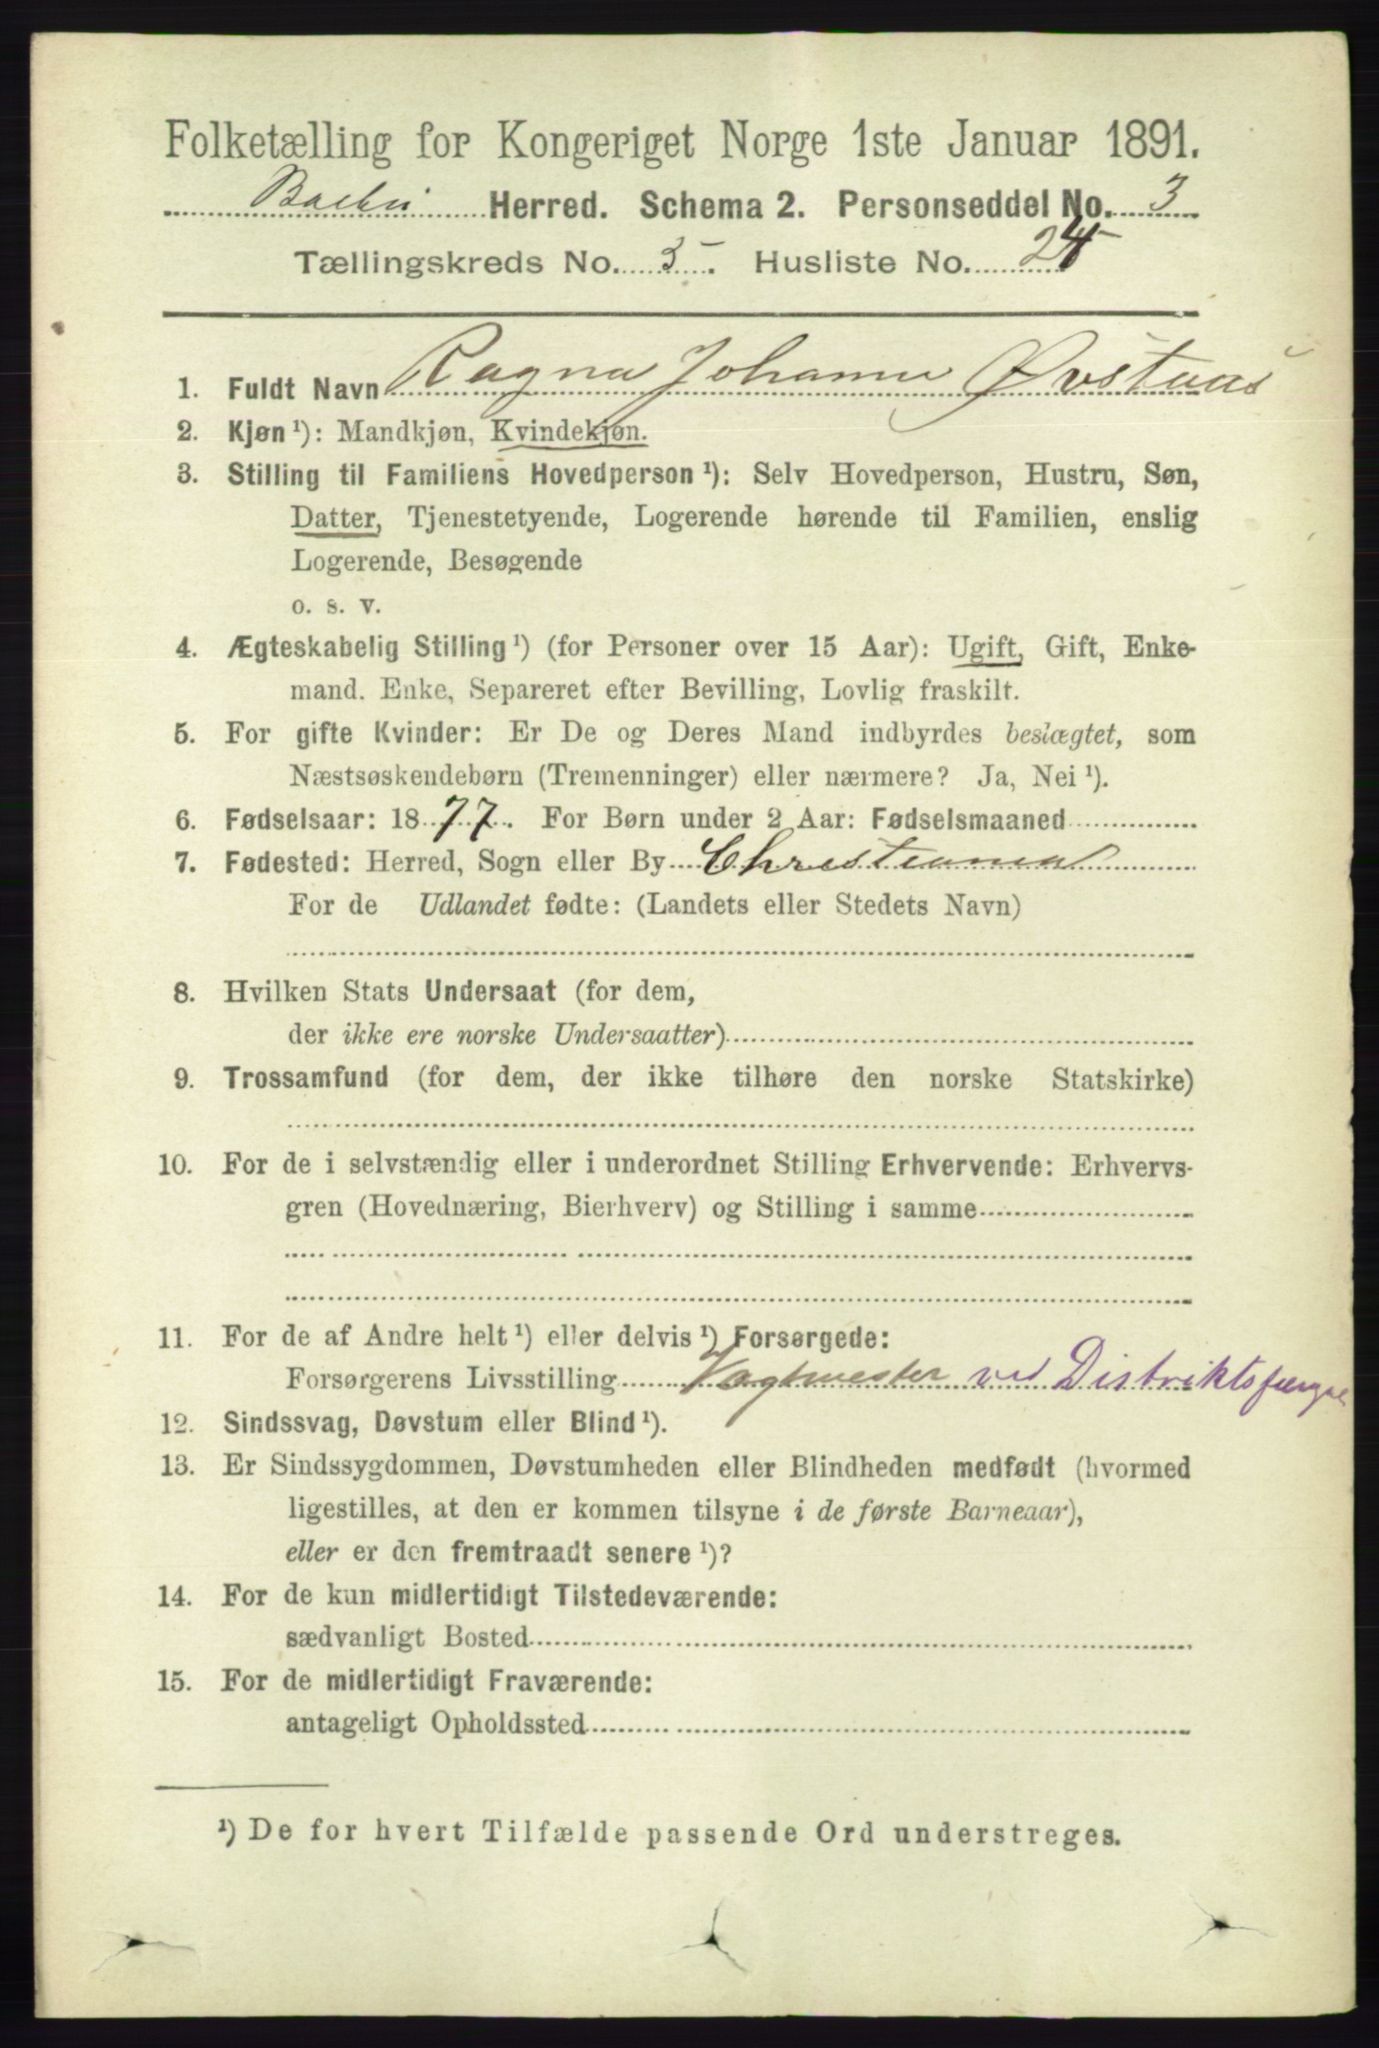 Folketælling for Kongeriget Norge 1ste Januar 1891.
Barbu Herred. Schema 2. Personseddel No. 3
Tællingskreds No. 3. Husliste No. 24
1. Fuldt Navn Ragna Johanne Øvstaas
2. Kjøn ¹): Mandkjøn, Kvindekjøn.
3. Stilling til Familiens Hovedperson ¹): Selv Hovedperson, Hustru, Søn,
Datter, Tjenestetyende, Logerende hørende til Familien, enslig
Logerende, Besøgende
o. s. v.
4. Ægteskabelig Stilling ¹) (for Personer over 15 Aar): Ugift, Gift, Enke-
mand. Enke, Separeret efter Bevilling, Lovlig fraskilt.
5. For gifte Kvinder: Er De og Deres Mand indbyrdes beslægtet, som
Næstsøskendebørn (Tremenninger) eller nærmere? Ja, Nei ¹).
6. Fødselsaar: 1877. For Børn under 2 Aar: Fødselsmaaned
7. Fødested: Herred, Sogn eller By Christiania
For de Udlandet fødte: (Landets eller Stedets Navn)
8. Hvilken Stats Undersaat (for dem,
der ikke ere norske Undersaatter)
9. Trossamfund (for dem, der ikke tilhøre den norske Statskirke)
10. For de i selvstændig eller i underordnet Stilling Erhvervende: Erhvervs-
gren (Hovednæring, Bierhverv) og Stilling i samme
11. For de af Andre helt ¹) eller delvis ¹) Forsørgede:
Forsørgerens Livsstilling Vagtmester ved Distriktsfængs
12. Sindssvag, Døvstum eller Blind ¹).
13. Er Sindssygdommen, Døvstumheden eller Blindheden medfødt (hvormed
ligestilles, at den er kommen tilsyne i de første Barneaar),
eller er den fremtraadt senere ¹)?
14. For de kun midlertidigt Tilstedeværende:
sædvanligt Bosted
15. For de midlertidigt Fraværende:
antageligt Opholdssted
¹) De for hvert Tilfælde passende Ord understreges.